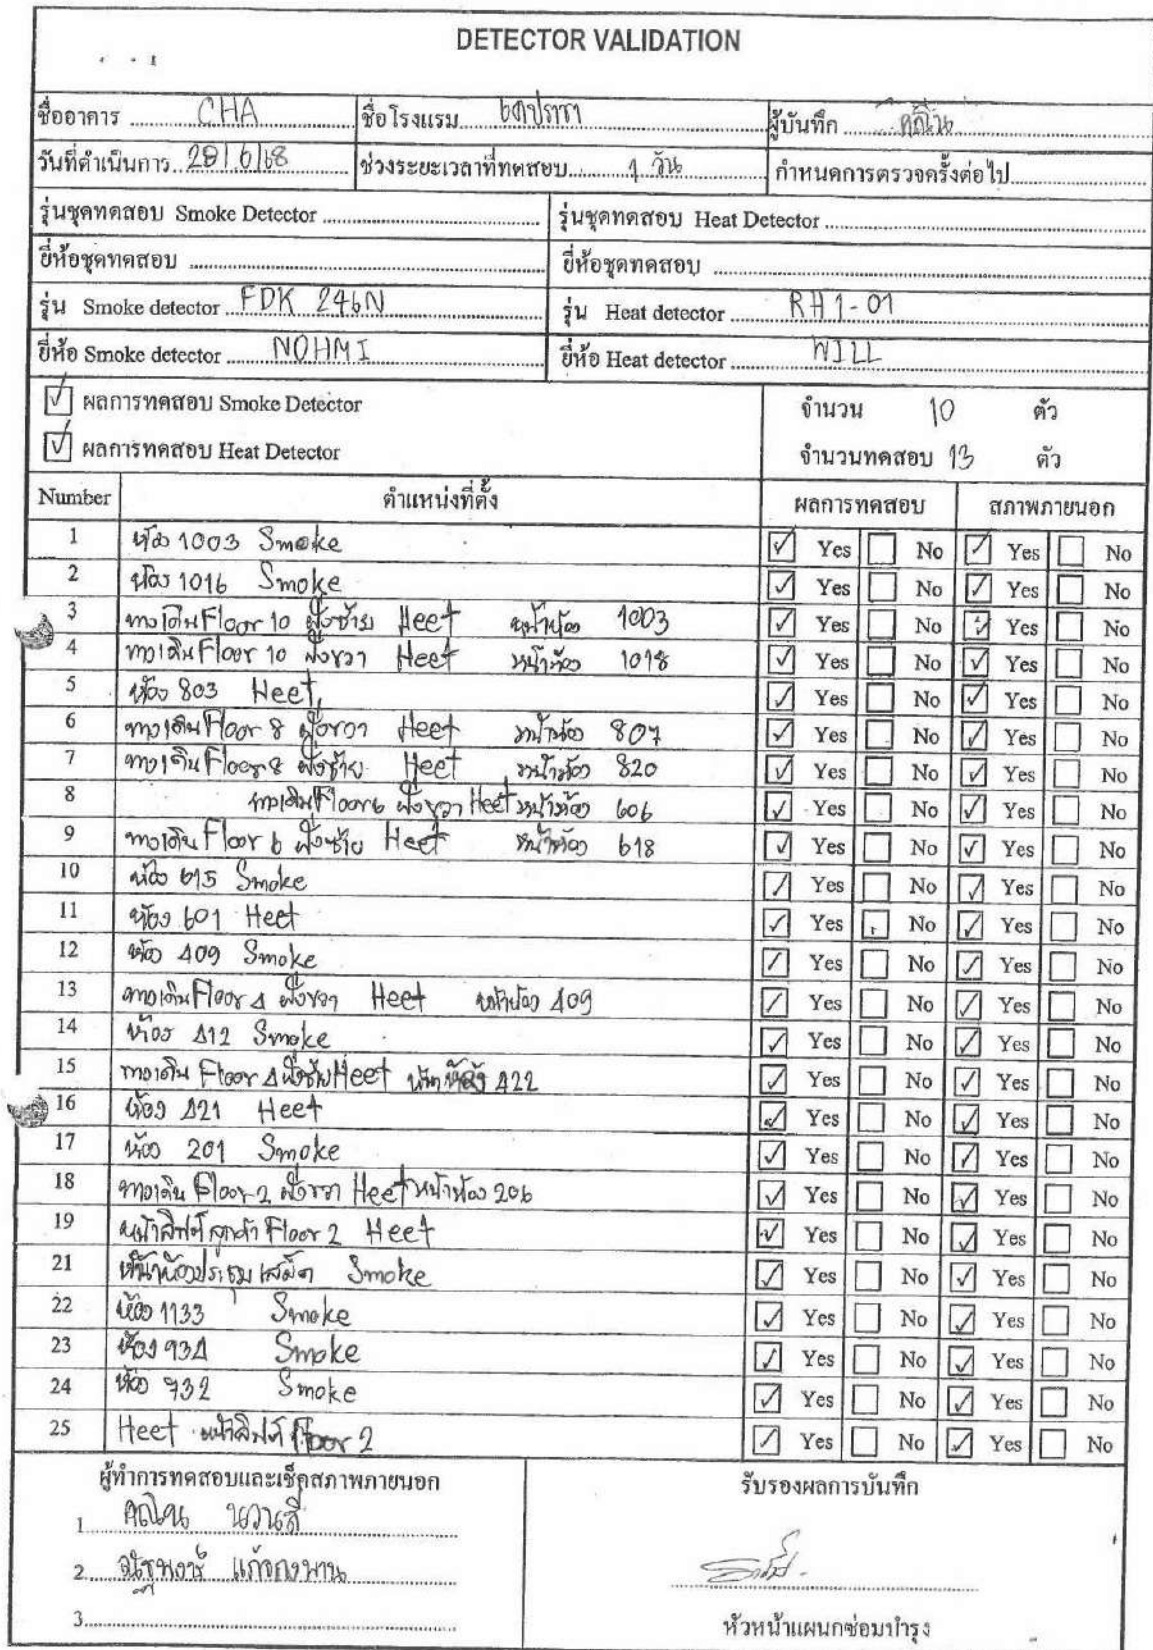 DETECTOR VALIDATION
ชื่ออาคาร CHA ชื่อโรงแรม ผู้บันทึก
วันที่ดำเนินการ 20/6/68 ช่วงระยะเวลาที่ทดสอบ 1 วัน กำหนดการตรวจครั้งต่อไป
รุ่นชุดทดสอบ Smoke Detector รุ่นชุดทดสอบ Heat Detector
ยี่ห้อชุดทดสอบ ยี่ห้อชุดทดสอบ
รุ่น Smoke detector FDK 246N รุ่น Heat detector RH1-01
ยี่ห้อ Smoke detector NOHMI ยี่ห้อ Heat detector WILL
ผลการทดสอบ Smoke Detector จำนวน 10 ตัว
ผลการทดสอบ Heat Detector จำนวนทดสอบ 13 ตัว
Number ตำแหน่งที่ตั้ง ผลการทดสอบ สภาพภายนอก
1 ห้อง 1003 Smoke Yes No Yes No
2 ห้อง 1016 Smoke Yes No Yes No
3 ทางเดิน Floor 10 ฝั่งซ้าย Heet หน้าห้อง 1003 Yes No Yes No
4 ทางเดิน Floor 10 ฝั่งขวา Heet หน้าห้อง 1018 Yes No Yes No
5 ห้อง 803 Heet Yes No Yes No
6 ทางเดิน Floor 8 ฝั่งขวา Heet หน้าห้อง 807 Yes No Yes No
7 ทางเดิน Floor 8 ฝั่งซ้าย Heet หน้าห้อง 820 Yes No Yes No
8 ทางเดิน Floor 6 ฝั่งขวา Heet หน้าห้อง 606 Yes No Yes No
9 ทางเดิน Floor 6 ฝั่งซ้าย Heet หน้าห้อง 618 Yes No Yes No
10 ห้อง 615 Smoke Yes No Yes No
11 ห้อง 601 Heet Yes No Yes No
12 ห้อง 409 Smoke Yes No Yes No
13 ทางเดิน Floor 4 ฝั่งขวา Heet หน้าห้อง 409 Yes No Yes No
14 ห้อง 412 Smoke Yes No Yes No
15 ทางเดิน Floor 4 ฝั่งซ้าย Heet หน้าห้อง 422 Yes No Yes No
16 ห้อง 421 Heet Yes No Yes No
17 ห้อง 201 Smoke Yes No Yes No
18 ทางเดิน Floor 2 ฝั่งขวา Heet หน้าห้อง 206 Yes No Yes No
19 หน้าลิฟต์ลูกค้า Floor 2 Heet Yes No Yes No
21 หน้าห้องประชุมเสม็ด Smoke Yes No Yes No
22 ห้อง 1133 Smoke Yes No Yes No
23 ห้อง 934 Smoke Yes No Yes No
24 ห้อง 732 Smoke Yes No Yes No
25 Heet หน้าลิฟต์ Floor 2 Yes No Yes No
ผู้ทำการทดสอบและเช็คสภาพภายนอก รับรองผลการบันทึก
1
2
3
หัวหน้าแผนกซ่อมบำรุง